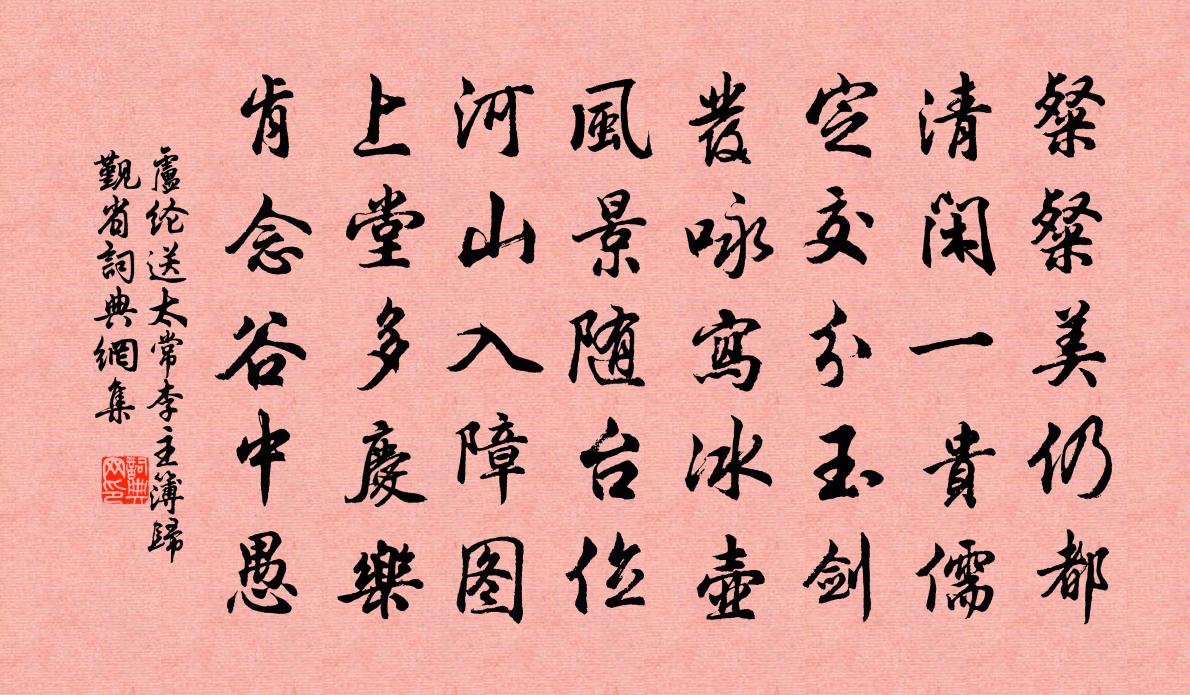 粲粲美仍都
清闲一貴儒
定交分玉剑
發咏寫冰壺
風景随台位
河山入障图
上堂多慶樂
肯念谷中愚
盧纶送太常李主簿歸
觐省詞典網集
詞典网印